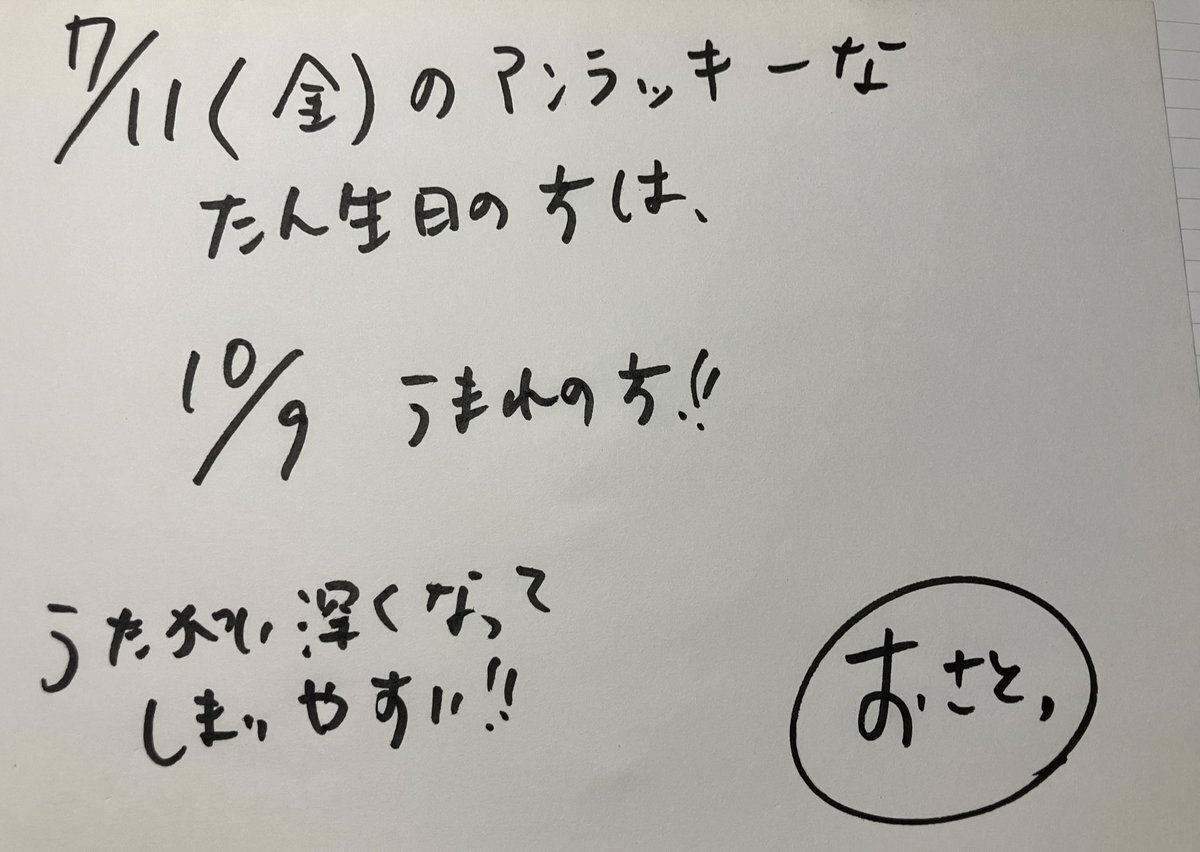 7/11(金)のアンラッキーな
たん生日の方は、
10/9 うまれの方!!
うたがい深くなって
しまいやすい!!
おさと、